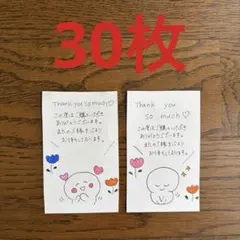 30枚
Thank you so much♡
この度はご購入いただき
ありがとうございます。
またのご縁がありますよう
お待ちしております。
Thank you
so much♡
この度はご購入いただき
ありがとうございます。
またのご縁がありますよう
お待ちしております。